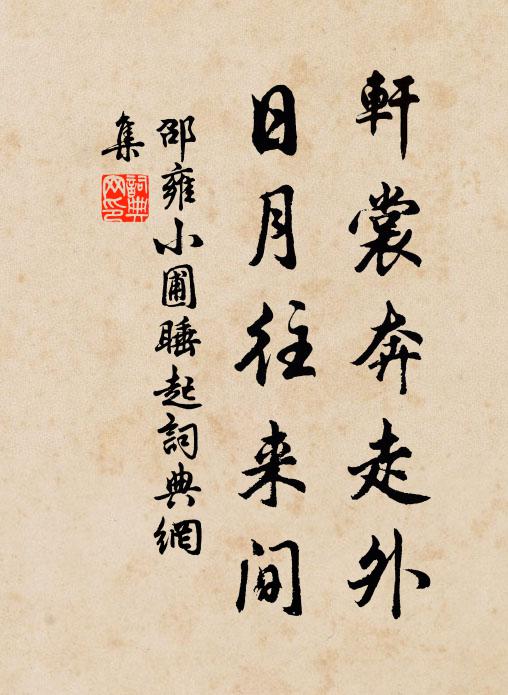 軒裳奔走外
日月往来间
邵雍小圃睡起詞典網
集
詞典
网印